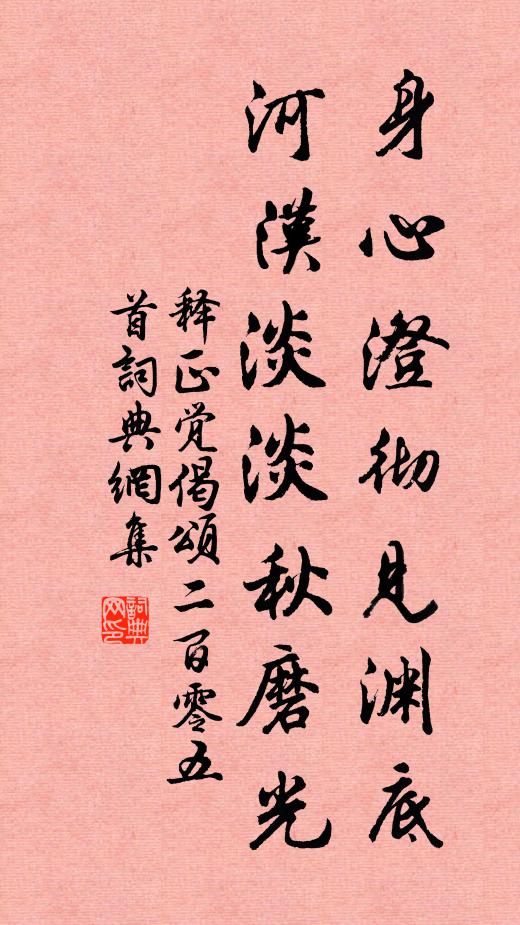 身心澄彻见渊底
河漢淡淡秋磨光
释正觉偈頌二百零五
首詞典網集
詞典网印